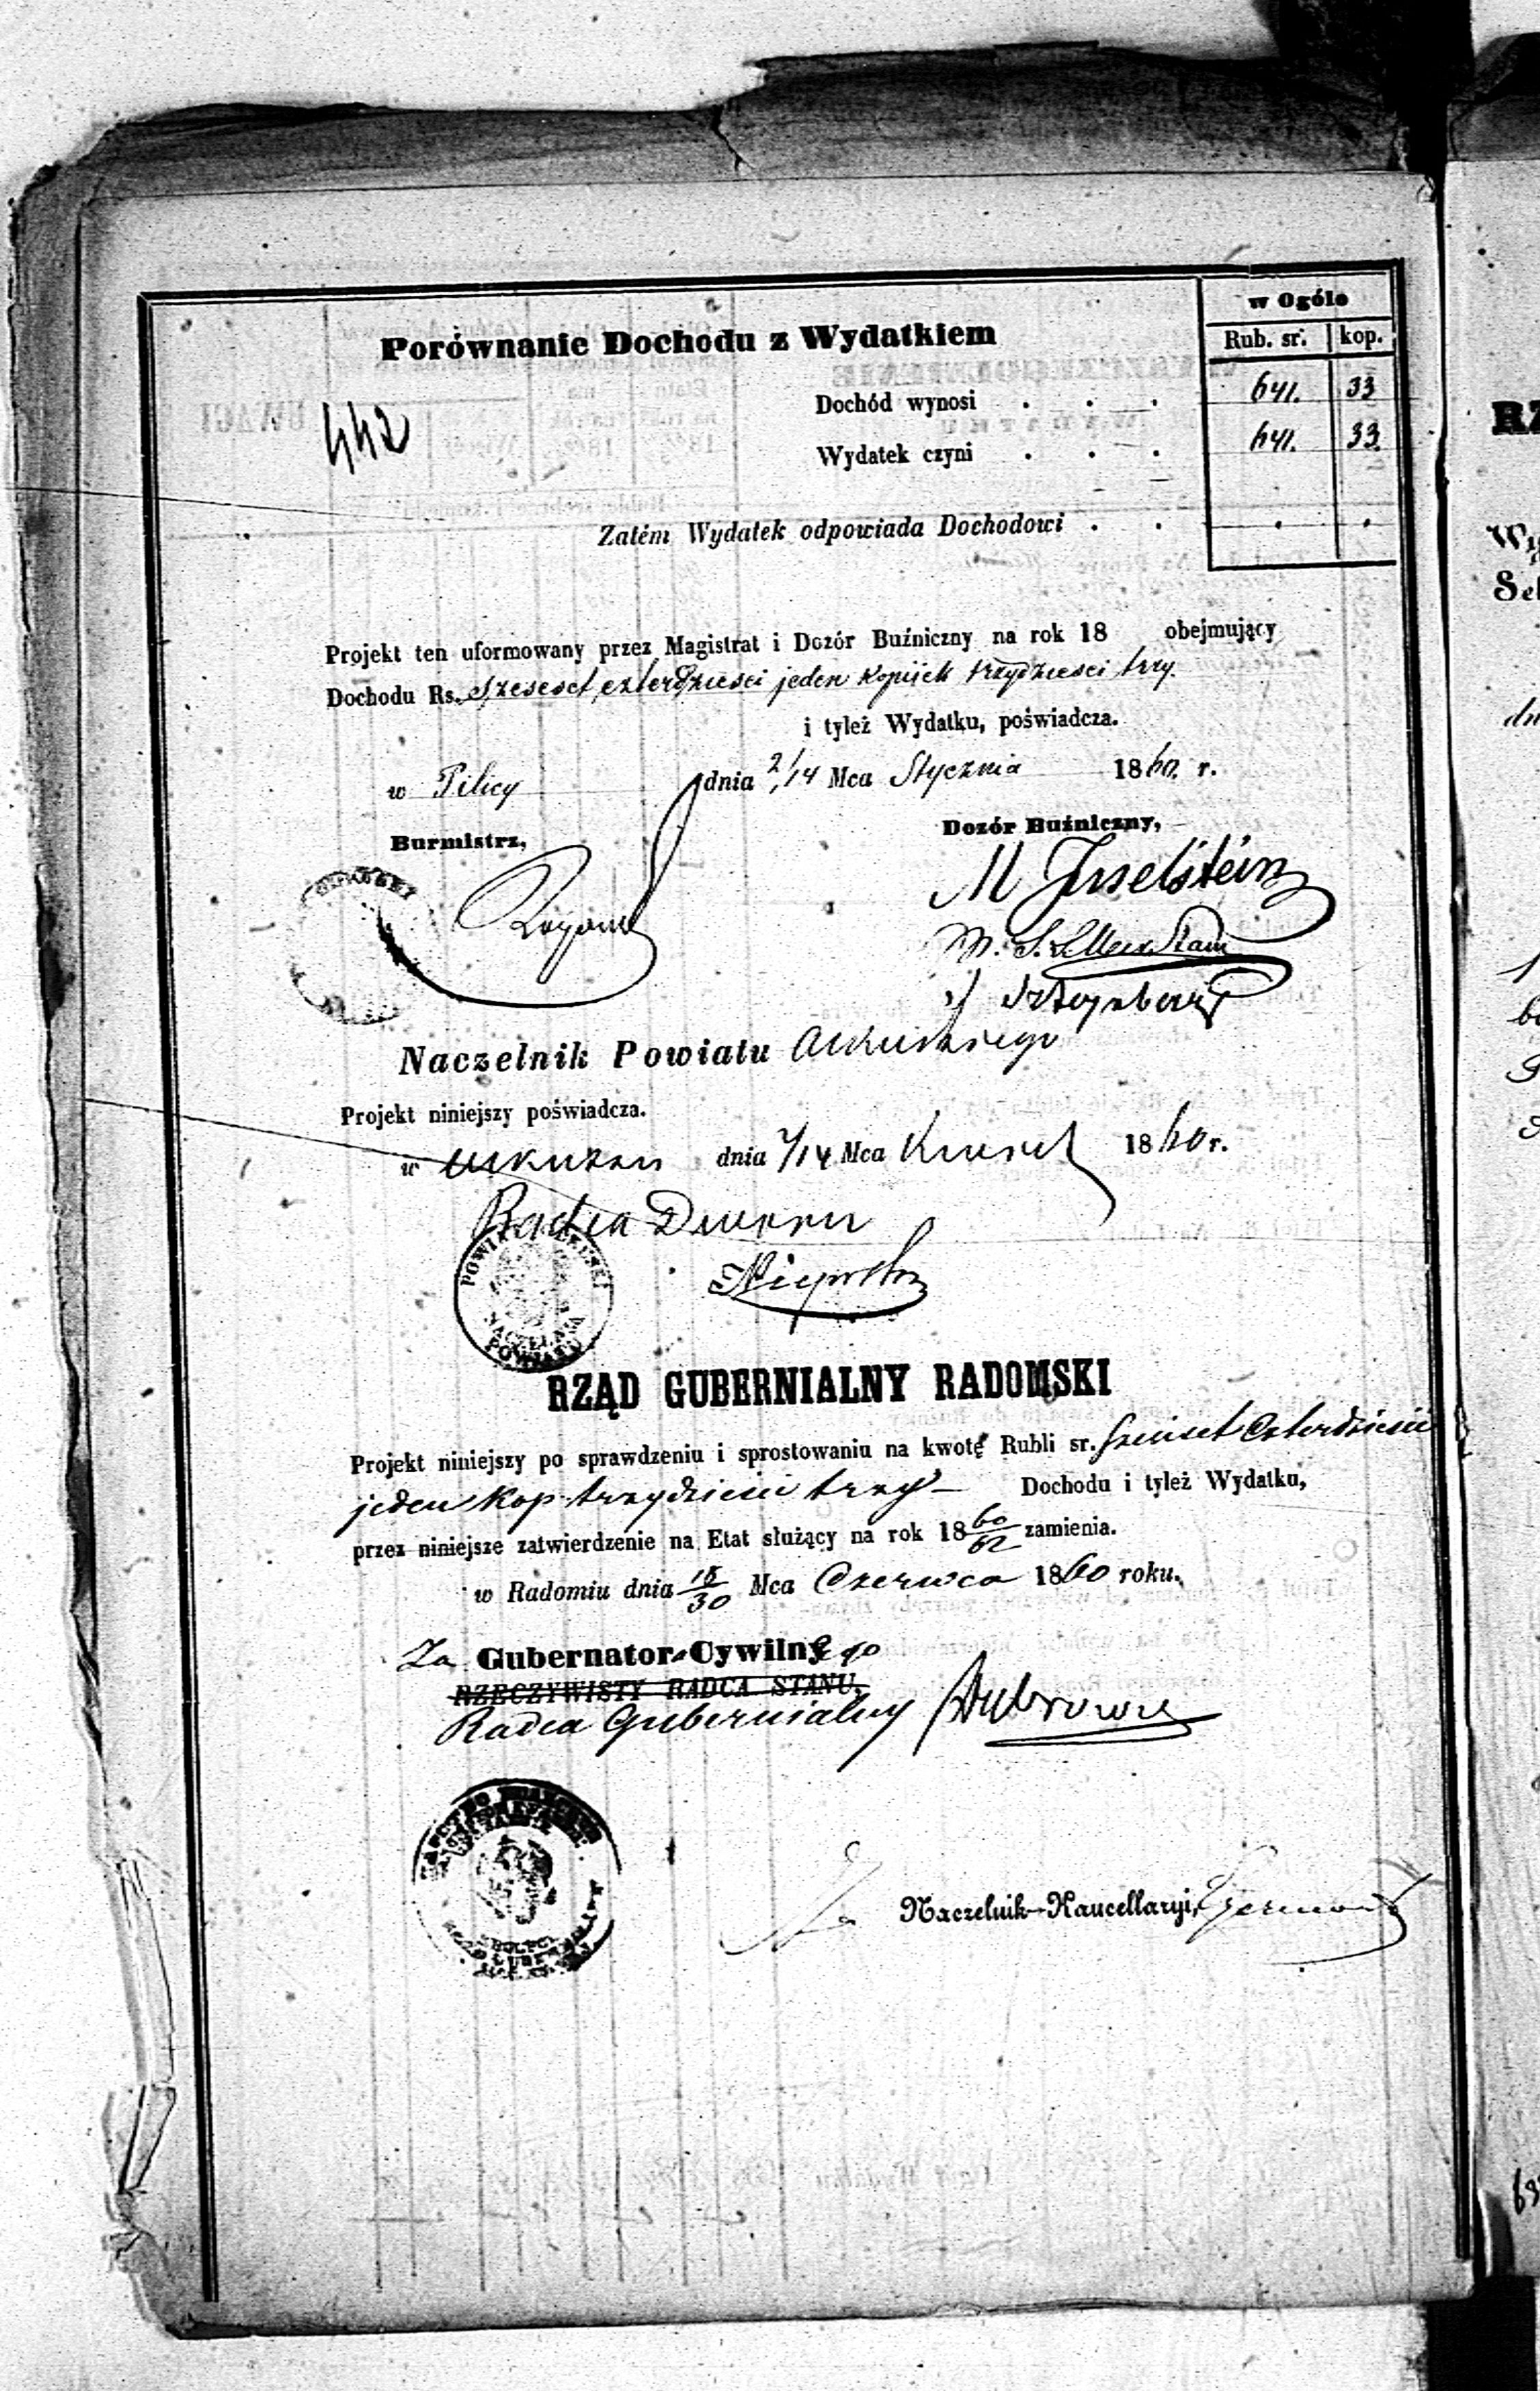 w Ogóle
Rub. sr. kop.
Porównanie Dochodu z Wydatkiem
442
Dochód wynosi . . . 641. 33
Wydatek czyni . . . 641. 33.
Zatém Wydatek odpowiada Dochodowi . . . .
Projekt ten uformowany przez Magistrat i Dozór Buźniczny na rok 18 obejmujący
Dochodu Rs. Szesćset czterdzieści jeden kopijek trzydzieści trzy.
i tyleż Wydatku, poświadcza.
w Pilicy dnia 2/14 Mca Stycznia 1860. r.
Burmistrz, Dozór Buźniczny,
M
Naczelnik Powiatu Olkuskiego
Projekt niniejszy poświadcza.
w Olkuszu dnia 2/14 Mca 1860 r.
Radca Dworu
POWIAT OLKUSKI
NACZELNIK
POWIATU
RZĄD GUBERNIALNY RADOMSKI
Projekt niniejszy po sprawdzeniu i sprostowaniu na kwotę Rubli sr. Sześćset Czterdzieści
jeden kop. trzydzieści trzy - Dochodu i tyleż Wydatku,
przez niniejsze zatwierdzenie na Etat służący na rok 18 60/62 zamienia.
w Radomiu dnia 18/30 Mca Czerwca 1860 roku.
Za Gubernator-Cywilnego
RZECZYWISTY RADCA STANU,
Radca Gubernialny
Za Naczelnik-Kancellaryi,